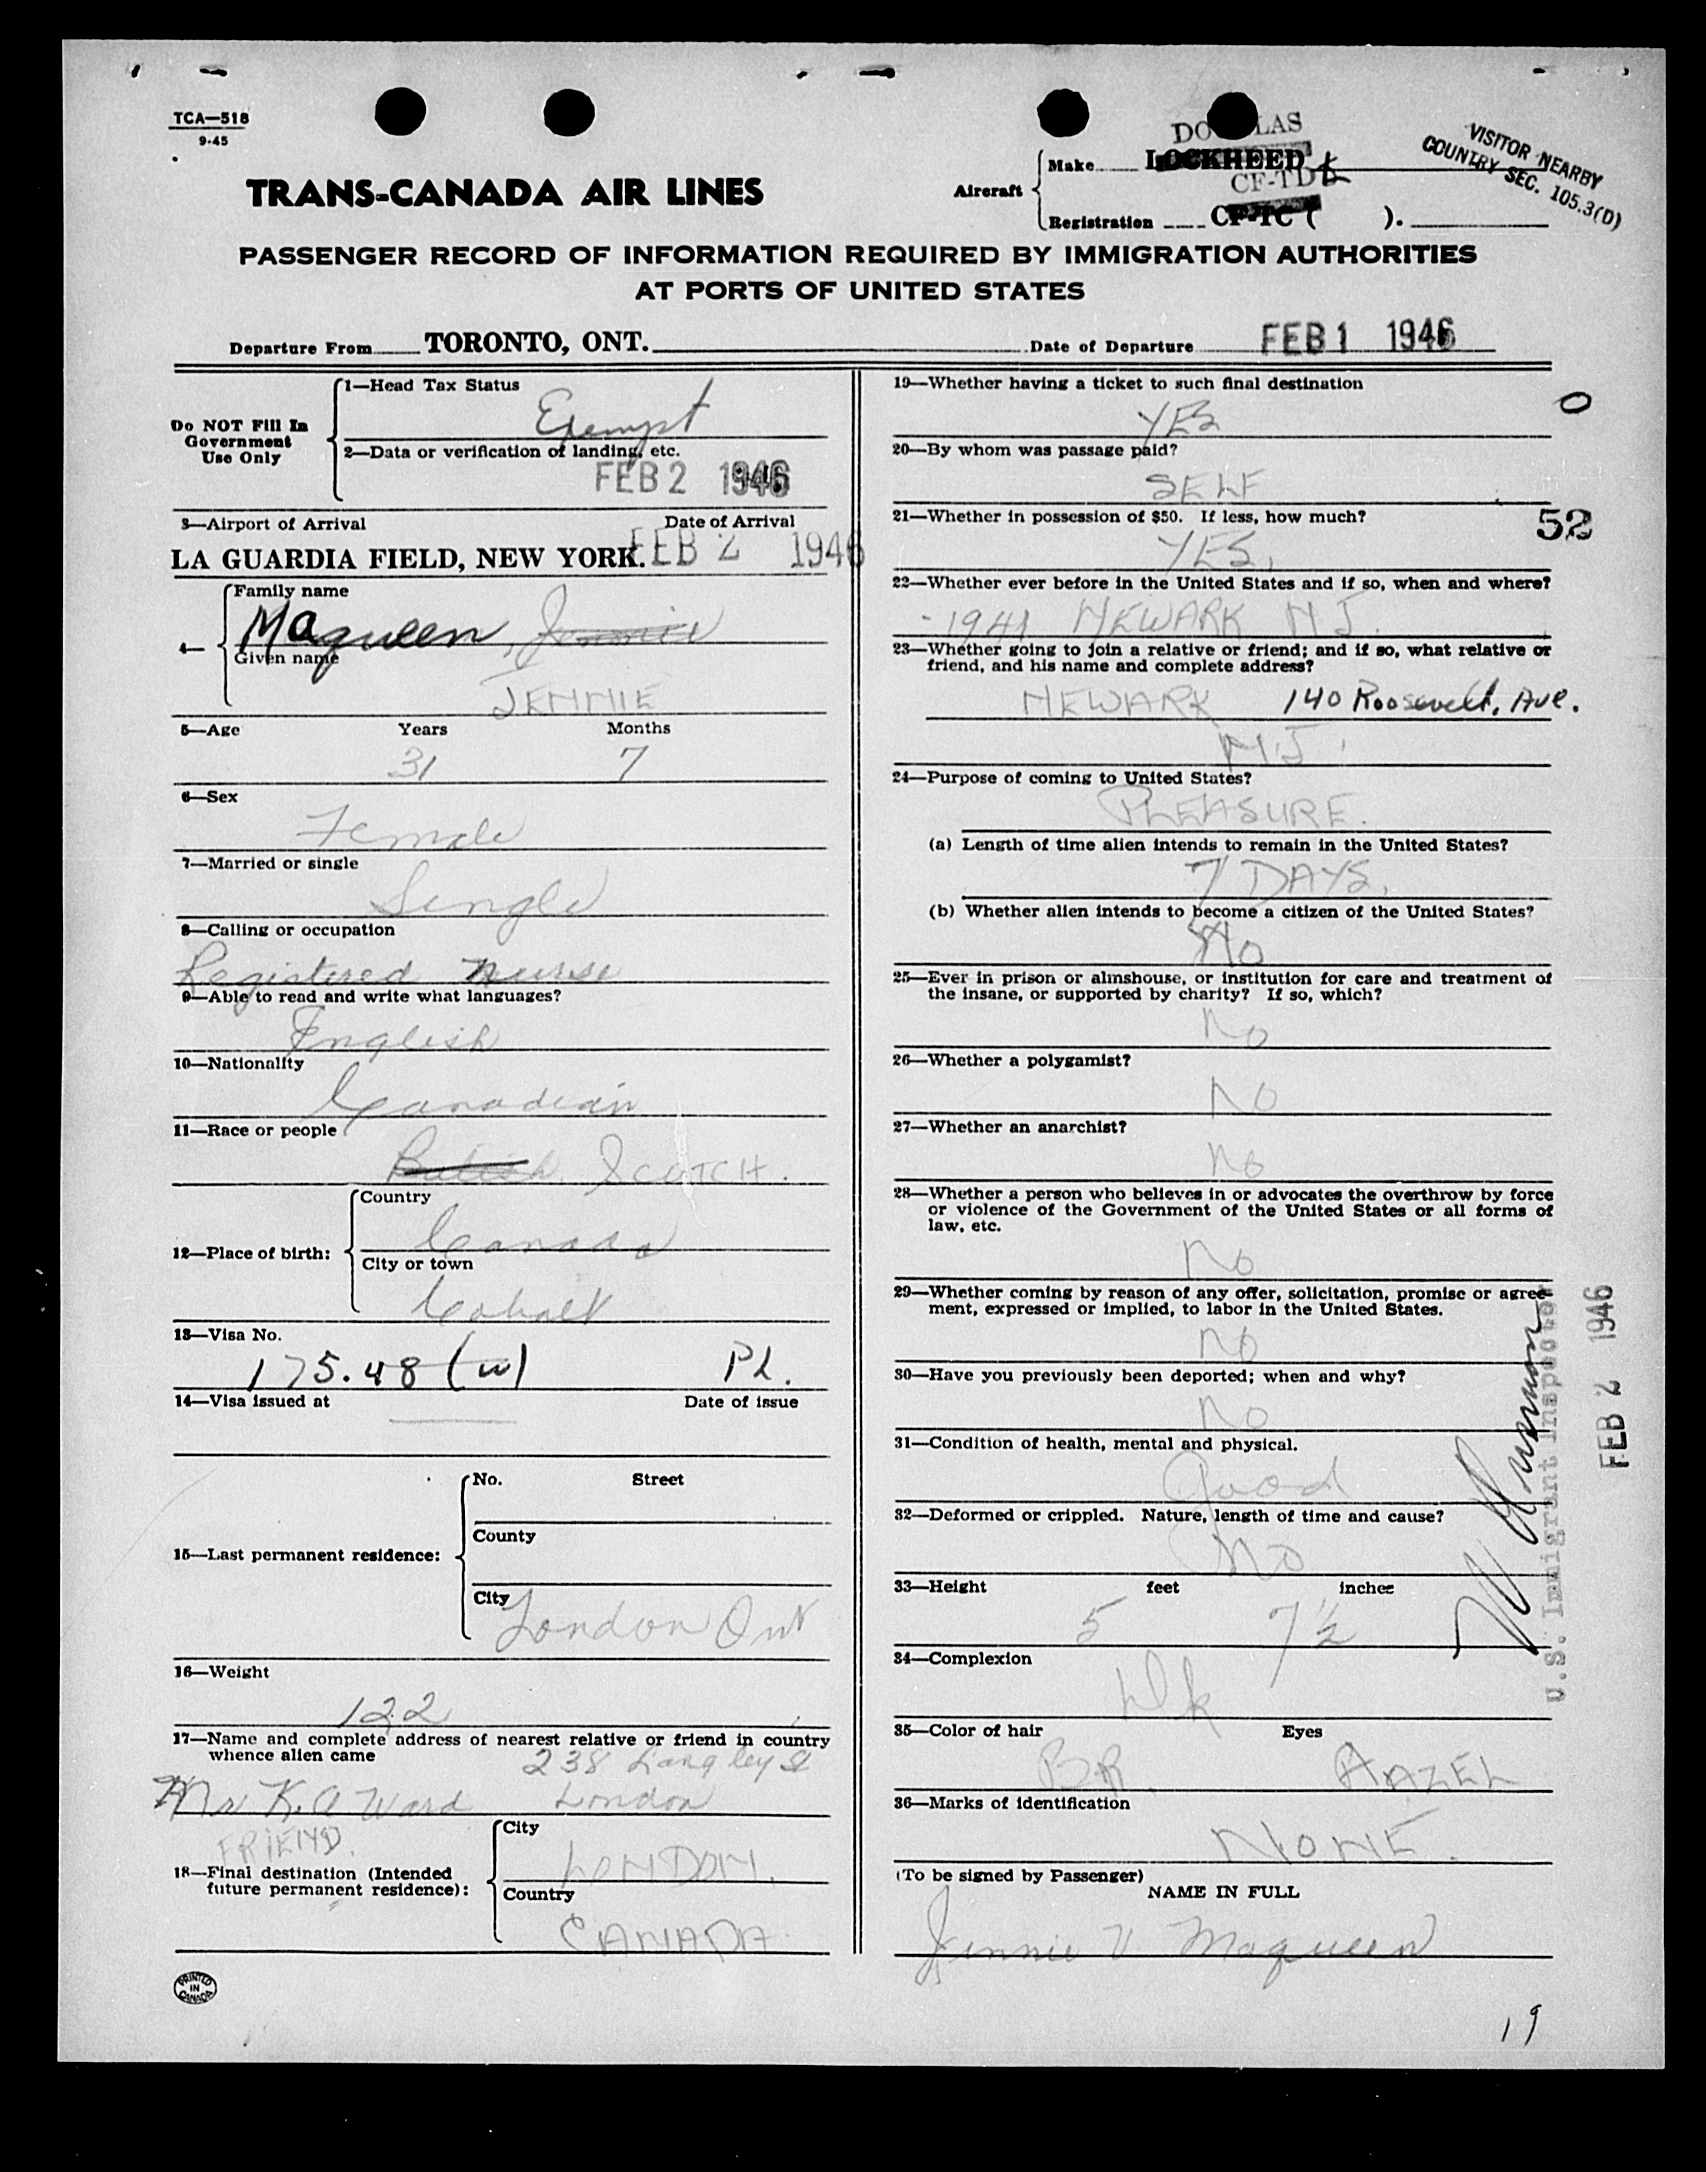 TCA—518
9-45
DOUGLAS
Make LOCKHEED
Aircraft
CF-TD
Registration CF-TC ( ).
VISITOR NEARBY
COUNTRY SEC. 105.3(D)
TRANS-CANADA AIR LINES
PASSENGER RECORD OF INFORMATION REQUIRED BY IMMIGRATION AUTHORITIES
AT PORTS OF UNITED STATES
Departure From TORONTO, ONT. Date of Departure FEB 1 1946
Do NOT Fill In
Government
Use Only
1—Head Tax Status
Exempt
2—Data or verification of landing, etc.
FEB 2 1946
3—Airport of Arrival Date of Arrival
LA GUARDIA FIELD, NEW YORK. FEB 2 1946
4—
Family name
Maqueen, Jennie
Given name
JENNIE
5—Age Years Months
31 7
6—Sex
Female
7—Married or single
Single
8—Calling or occupation
Registered Nurse
9—Able to read and write what languages?
English
10—Nationality
Canadian
11—Race or people
British SCOTCH.
12—Place of birth:
Country
Canada
City or town
Cobalt
13—Visa No.
175.48 (w) PL.
14—Visa issued at Date of issue
15—Last permanent residence:
No. Street
County
City
London Ont
16—Weight
122
17—Name and complete address of nearest relative or friend in country
whence alien came
238 Langley St
Mr K. A Ward London
FRIEND.
18—Final destination (Intended
future permanent residence):
City
LONDON.
Country
CANADA
PRINTED
IN
CANADA
19—Whether having a ticket to such final destination
YES
0
20—By whom was passage paid?
SELF
21—Whether in possession of $50. If less, how much?
52
YES.
22—Whether ever before in the United States and if so, when and where?
- 1941 NEWARK N J.
23—Whether going to join a relative or friend; and if so, what relative or
friend, and his name and complete address?
NEWARK 140 Roosevelt, Ave.
N.J.
24—Purpose of coming to United States?
PLEASURE.
(a) Length of time alien intends to remain in the United States?
7 DAYS.
(b) Whether alien intends to become a citizen of the United States?
No
25—Ever in prison or almshouse, or institution for care and treatment of
the insane, or supported by charity? If so, which?
No
26—Whether a polygamist?
No
27—Whether an anarchist?
No
28—Whether a person who believes in or advocates the overthrow by force
or violence of the Government of the United States or all forms of
law, etc.
No
29—Whether coming by reason of any offer, solicitation, promise or agree-
ment, expressed or implied, to labor in the United States.
No
30—Have you previously been deported; when and why?
No
31—Condition of health, mental and physical.
Good
32—Deformed or crippled. Nature, length of time and cause?
No
33—Height feet inches
5 7 1/2
34—Complexion
Dk
35—Color of hair Eyes
BR. HAZEL
36—Marks of identification
NONE.
(To be signed by Passenger)
NAME IN FULL
Jennie V Maqueen
U.S. Immigrant Inspector
FEB 2 1946
19